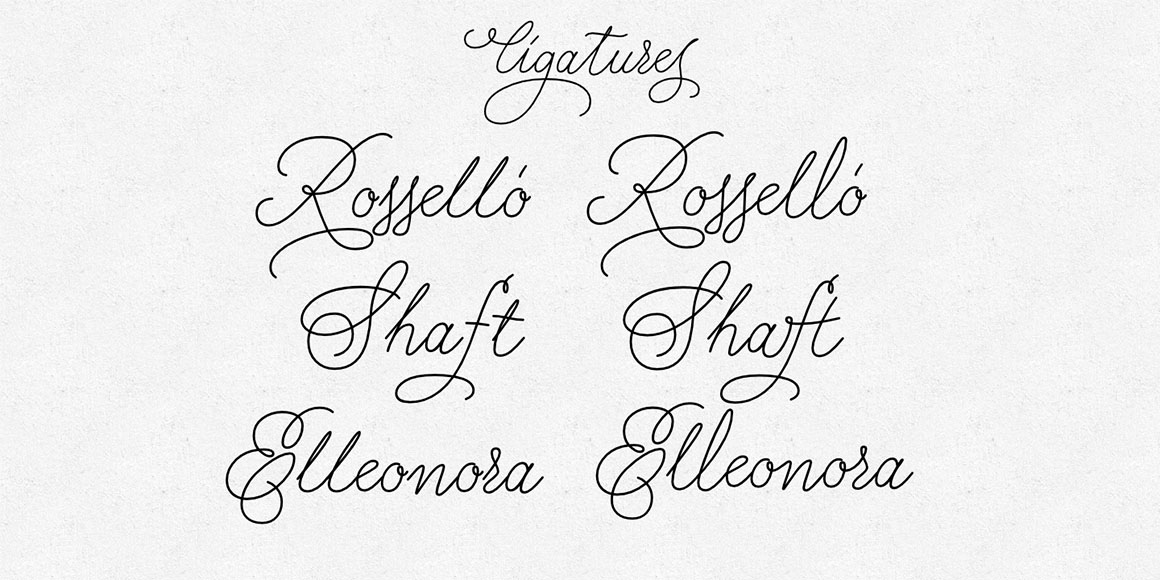 ligatures
Rosselló Rosselló
Shaft Shaft
Elleonora Elleonora